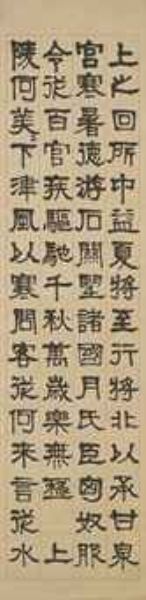 上之回所中益夏將至行將北以承甘泉
宮寒暑德游石關望諸國月氏臣匈奴服
令從百官疾驅馳千秋萬歲樂無極 上
陵何美美下津風以寒問客從何來言從水